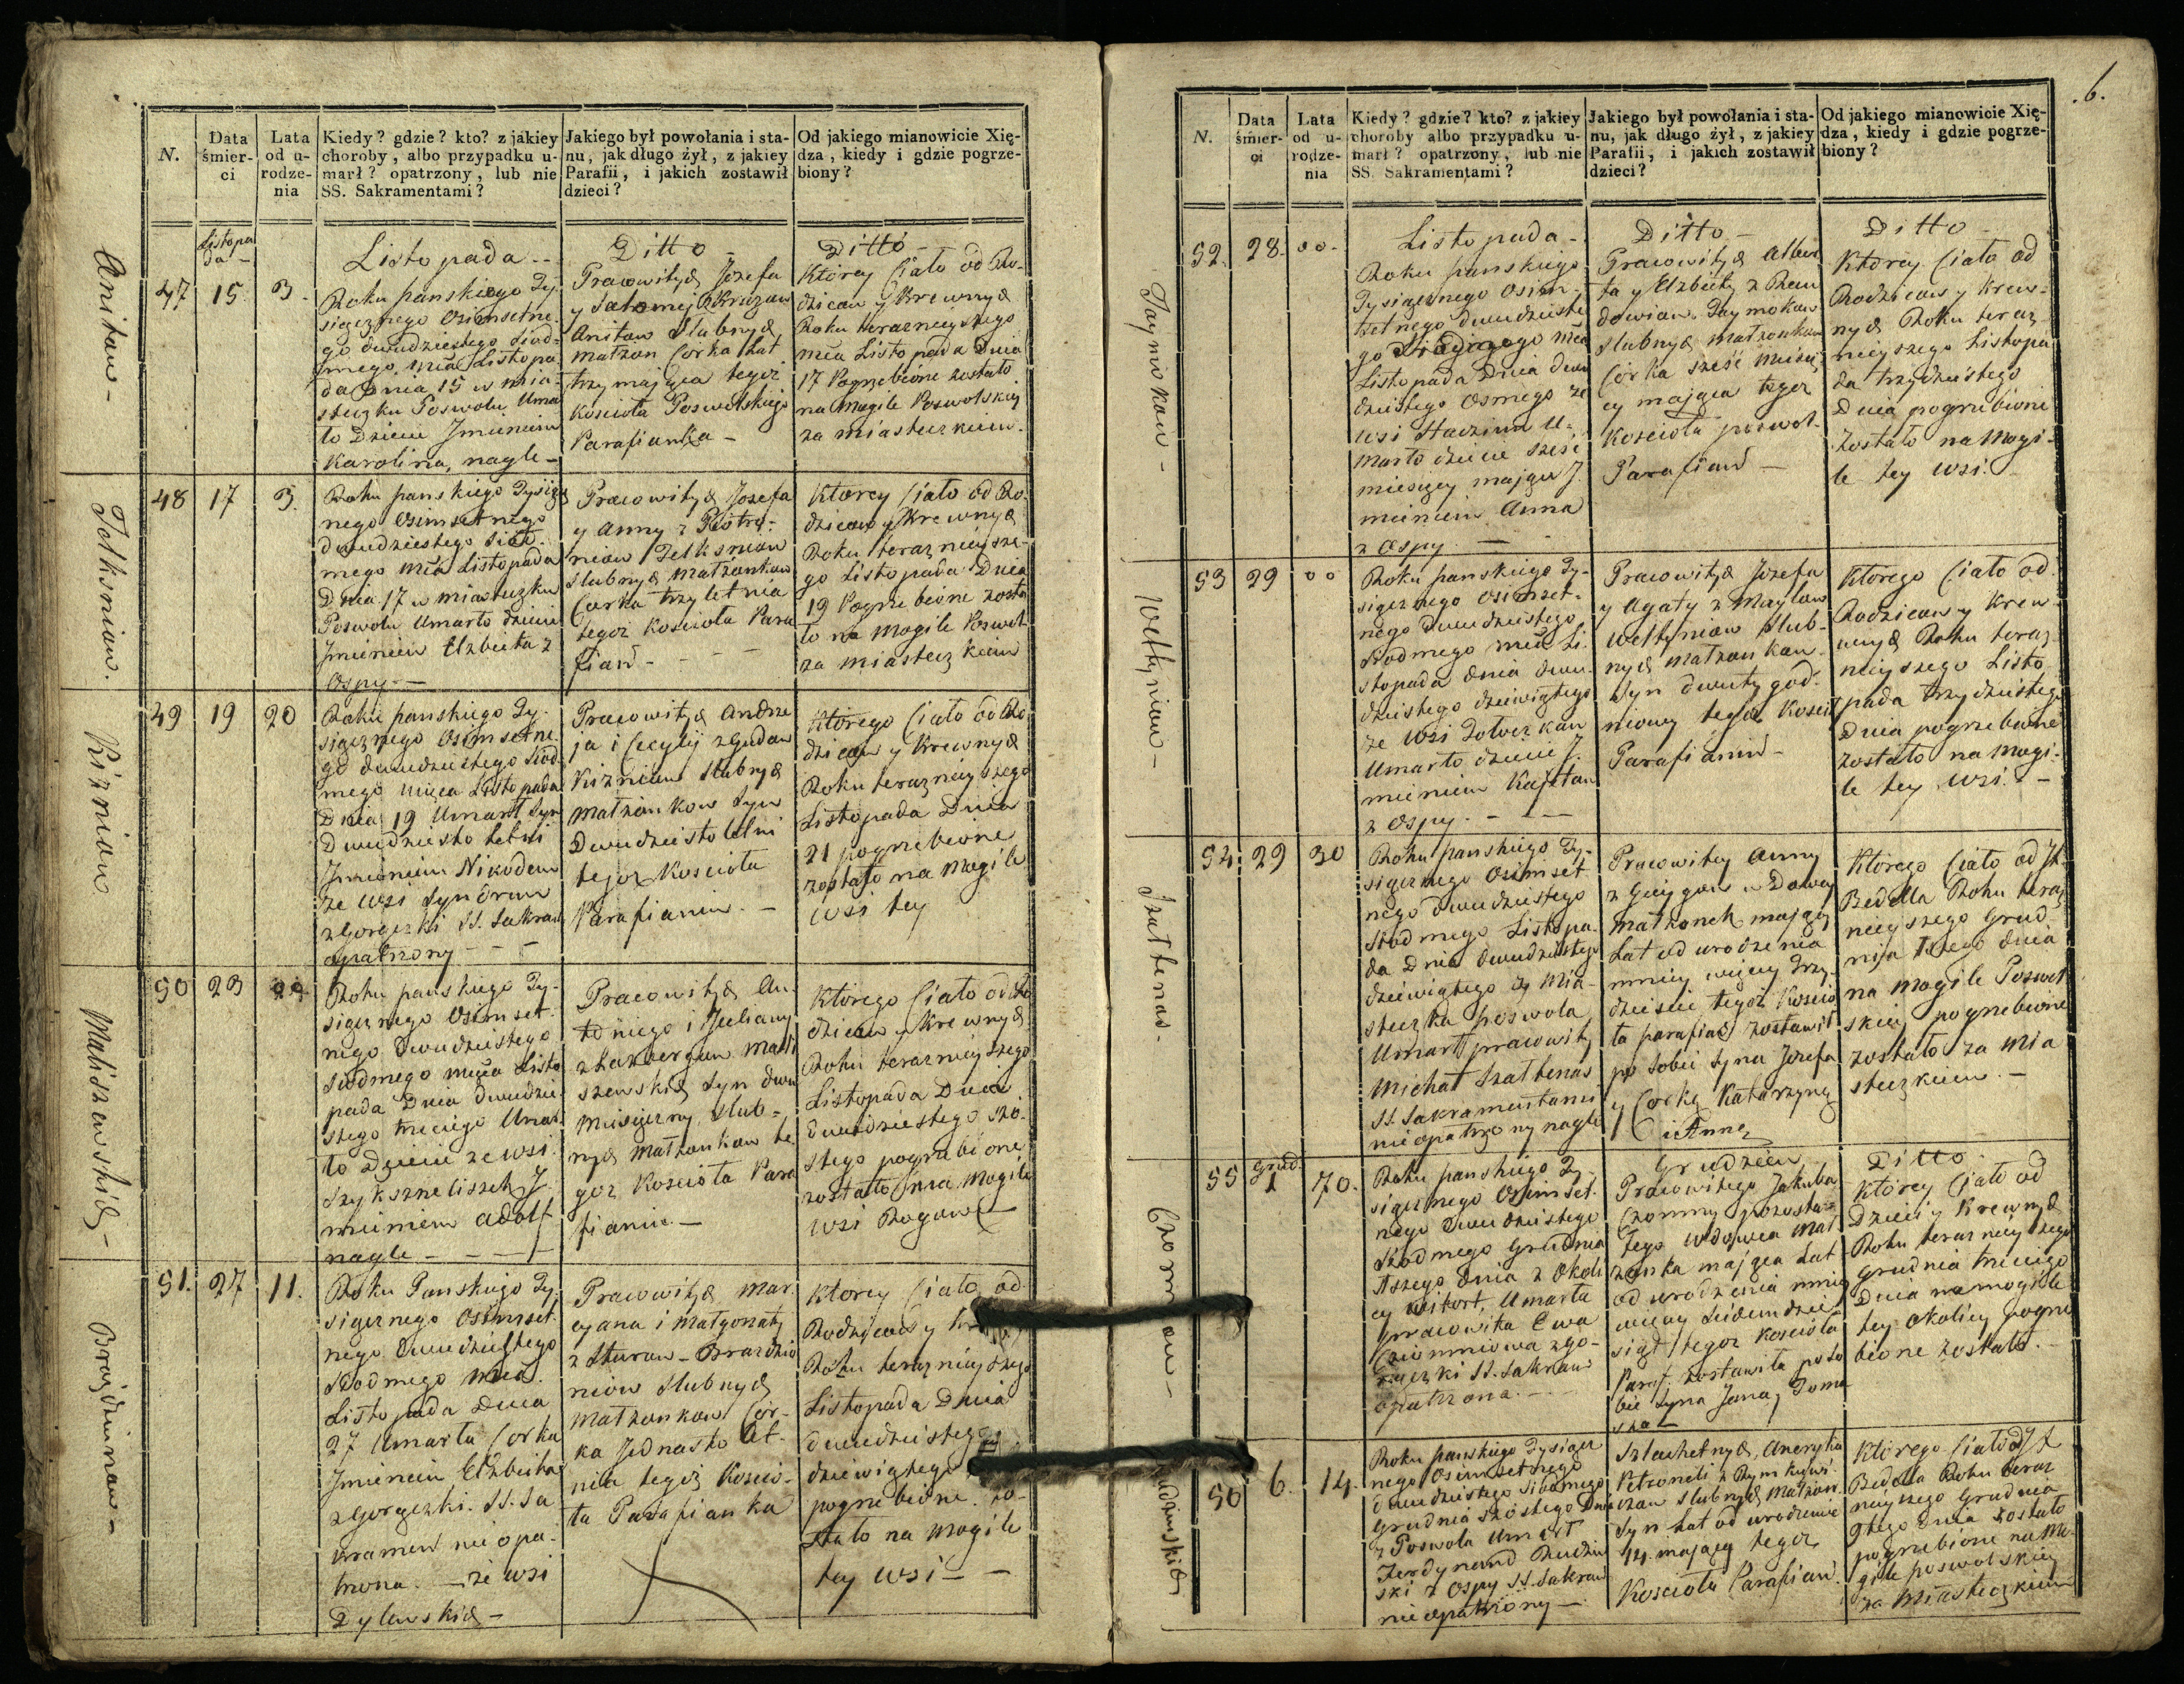 N.
Data
śmier-
ci
Lata
od u-
rodze-
nia
Kiedy? gdzie? kto? z jakiey
choroby, albo przypadku u-
marł? opatrzony, lub nie
SS. Sakramentami?
Jakiego był powołania i sta-
nu, jak długo żył, z jakiey
Parafii, i jakich zostawił
dzieci?
Od jakiego mianowicie Xię-
dza, kiedy i gdzie pogrze-
biony?
Anitaw -
Listopa
da -
47
15
3.
Listopada --
Roku panskiego Ty-
sięcznego Osimsetne-
go dwudziestego siod-
mego mca Listopa
da Dnia 15 w mia-
steczku Poswolu Umar
ło Dziecie Jmieniem
Karolina, nagle -
Ditto -
Pracowitych Jozefa
y Salomeji
Anitaw Slubnych
małżon Corka Lat
trzy mająca tegoż
Kościoła Poswolskiego
Parafianka -
Ditto -
Ktorey Ciało od Ro-
dzicow y Krewnych
Roku teraznieyszego
mca Listopada Dnia
17 Pogrzebione zostało
na Mogile Poswolskiey
za miasteczkiem.
48
17
3.
Roku panskiego Tysięcz
nego Osimsetnego
dwudziestego siod-
mego mca Listopada
Dnia 17 w miasteczku
Poswolu Umarło dziecie
Jmieniem Elzbieta z
Ospy -
Pracowitych Jozefa
y Anny z
Slubnych Małżonkow
Corka trzyletnia
tegoż Kościoła Para
fian - - - -
Ktorey Ciało od Ro-
dzicow y Krewnych
Roku teraznieysze-
go Listopada Dnia
19 Pogrzebione zosta
ło na Mogile Poswol
za miasteczkiem
Kiznian
49
19
20
Roku panskiego Ty-
sięcznego Osimsetne-
go dwudziestego siod
mego mca Listopada
Dnia 19 Umarł Syn
Dwudziesto letni
Jmieniem Nikodem
ze wsi
z Gorączki SS. Sakram
opatrzony - - -
Pracowitych Andrze
ja i Cecylij z Gudow
Kiznian Slubnych
Małżonkow Syn
Dwudziesto letni
tegoż Kościoła
Parafianin. -
Ktorego Ciało od Ro-
dzicow y Krewnych
Roku teraznieyszego
Listopada Dnia
21 pogrzebione
zostało na Mogile
wsi tey
Maliszewskich -
50
23
Roku panskiego Ty-
sięcznego Osimset-
nego Dwudziestego
siodmego mca Listo
pada Dnia dwudzie-
stego trzeciego Umar
ło Dziecie ze wsi
J-
mieniem Adolf
nagle - - - -
Pracowitych An-
toniego i Julianny
Mali
szewskich Syn dwu
miesięczny Slub-
nych Małżonkow te
goż Kościoła Para
fianin -
Ktorego Ciało od Ro
dzicow y Krewnych
Roku teraznieyszego
Listopada Dnia
dwudziestego szo-
stego pogrzebione
zostało na Mogile
wsi Rogow -
51.
27
11.
Roku Panskiego Ty-
sięcznego Osimset
nego Dwudziestego
siodmego mca.
Listopada Dnia
27 Umarła Corka
Jmieniem Elzbieta
z Gorączki. SS. Sa
kramen nie opa-
trzona. - ze wsi
Dylewskich -
Pracowitych Mar-
cyana i Małgorzaty
niow Slubnych
Małżonkow Cor-
ka Jednasto let-
nia tegoż Koscio-
ła Parafianka
Ktorey Ciało od
Rodzicow y
Roku teraznieyszego
Listopada Dnia
dwudziestego
dziewiątego
pogrzebione. zo-
stało na Mogile
tey wsi - -
.6.
N.
Data
śmier-
ci
Lata
od u-
rodze-
nia
Kiedy? gdzie? kto? z jakiey
choroby albo przypadku u-
marł? opatrzony, lub nie
SS. Sakramentami?
Jakiego był powołania i sta-
nu, jak długo żył, z jakiey
Parafii, i jakich zostawił
dzieci?
Od jakiego mianowicie Xię-
dza, kiedy i gdzie pogrze-
biony?
Taymokow -
52.
28.
00-
Listopada -
Roku panskiego
Tysięcznego Osim-
setnego dwudzieste
go siodmego mca
Listopada Dnia dwu
dziestego Osmego ze
wsi U-
marło dziecie sześć
miesięcy mające J-
mieniem Anna
z Ospy - -
Ditto -
Pracowitych Alber
ta y Elzbiety z
Taymokow
Slubnych małżonkow
Corka sześć miesię-
cy mająca tegoż
Kościoła poswol-
Parafian -
Ditto -
Ktorey Ciało od
Rodzicow y Krew-
nych Roku teraz
nieyszego Listopa
da trzydziestego
Dnia pogrzebione
zostało na Mogi-
le tey wsi. -
Weltynian -
53
29
00
Roku panskiego Ty-
sięcznego Osimset-
nego Dwudziestego
siodmego mca Li-
stopada Dnia dwu-
dziestego dziewiątego
ze wsi
Umarło dziecie J-
mieniem Kajetan
z Ospy. - - -
Pracowitych Jozefa
y Agaty z
Weltynian Slub-
nych małżonkow
Syn dwutygod-
niowy tegoż Koscioł
Parafianin -
Ktorego Ciało od
Rodzicow y Krew-
nych Roku teraz-
nieyszego Listo
pada trzydziestego
Dnia pogrzebione
zostało na Mogi-
le tey wsi. -
Szattenas -
54.
29
30
Roku panskiego Ty-
sięcznego Osimset
nego dwudziestego
siodmego Listopa
da Dnia dwudziestego
dziewiątego z Mia-
steczka poswola
Umarł pracowity
Michał Szattenas
SS. Sakramentami
nieopatrzony nagle
Pracowitey Anny
małżonek mający
Lat od urodzenia
mniey więcey trzy-
dzieści tegoż Koscio
ła parafian zostawił
po sobie Syna Jozefa
y Corkę Katarzynę
i Annę
Ktorego Ciało od St.
Bedella Roku teraz
nieyszego Grud-
nia 1szego dnia
na mogile Poswol
skiey pogrzebione
zostało za mia
steczkiem. -
55
Grud.
1
70.
Roku panskiego Ty-
sięcznego Osimset-
nego Dwudziestego
siodmego Grudnia
1szego Dnia z Okoli
cy Witort, Umarła
pracowita Ewa
z Go-
rączki SS. Sakram
Opatrzona. - -
Grudzień
Pracowitego Jakuba
pozosta-
łego wdowca Mał
żonka mająca Lat
od urodzenia mniey
więcey siedemdzie-
siąt tegoż Kościoła
Paraf. zostawiła po so
bie Syna Jana, Toma
sza -
Ditto
Ktorey Ciało od
Dzieci y Krewnych
Roku teraznieyszego
Grudnia trzeciego
Dnia na mogile
tey Okolicy pogrze
bione zostało. -
56
6.
14.
Roku panskiego Tysięcz
nego Osimsetnego
dwudziestego siodmego
Grudnia szostego Dnia
z Poswola Umarł
Ferdynand
ski z Ospy SS. Sakram
nieopatrzony -
Szlachetnych
Petroneli z
Slubnych Małżon.
Syn Lat od urodzenia
14. mający tegoż
Kościoła Parafian.
Ktorego Ciało od St
Bedella Roku teraz
nieyszego Grudnia
9tego Dnia zostało
pogrzebione na Mo-
gile poswolskiey
za Miasteczkiem